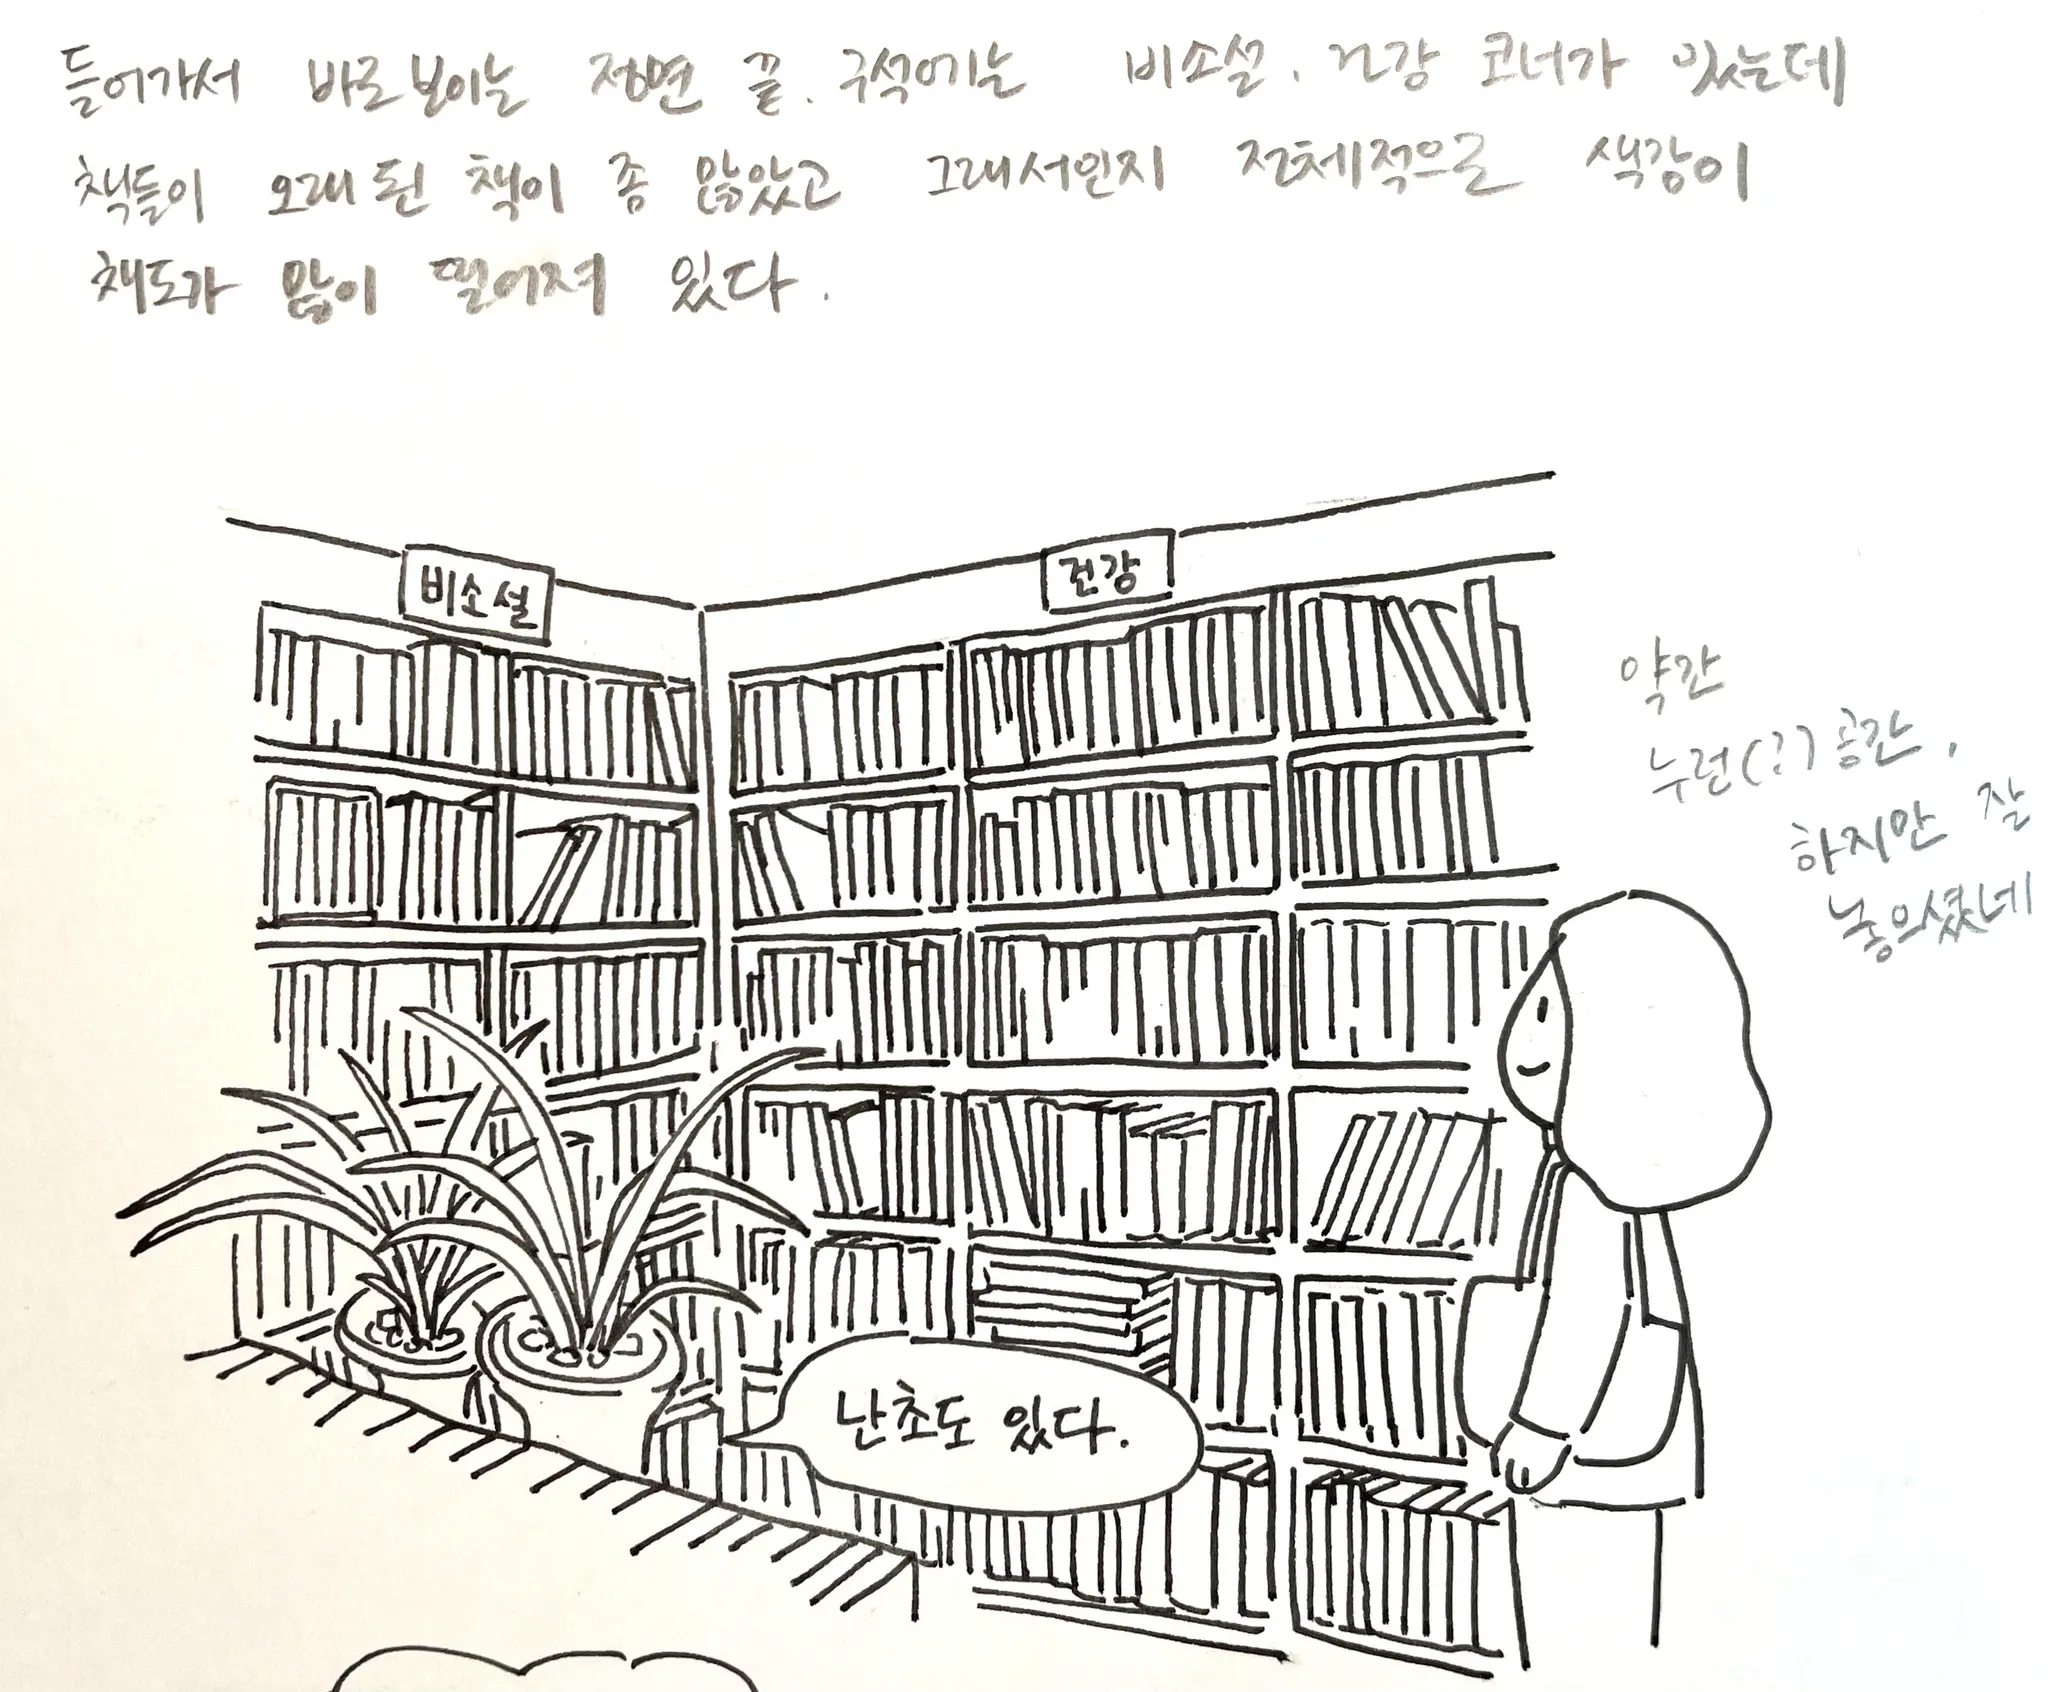 들어가서 바로 보이는 정면 끝. 구석에는 비소설. 건강 코너가 있는데
책들이 오래된 책이 좀 많았고 그래서인지 전체적으로 색감이
채도가 많이 떨어져 있다.
비소설
건강
약간
누런(?) 공간,
하지만 잘
놓으셨네
난초도 있다.